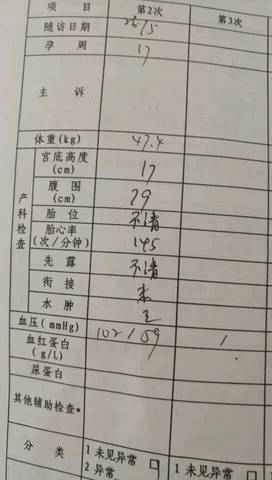 项 目 第2次 第3次
随访日期
孕 周 17
主 诉
体重(kg) 47.4
宫底高度(cm) 17
腹围(cm) 79
产科检查
胎 位 不清
胎心率(次/分钟) 145
先 露 不清
衔 接 未
水 肿
血压(mmHg) 102/59 /
血红蛋白(g/L)
尿蛋白
其他辅助检查*
分 类 1 未见异常 □ 1 未见异常 □
2 异常